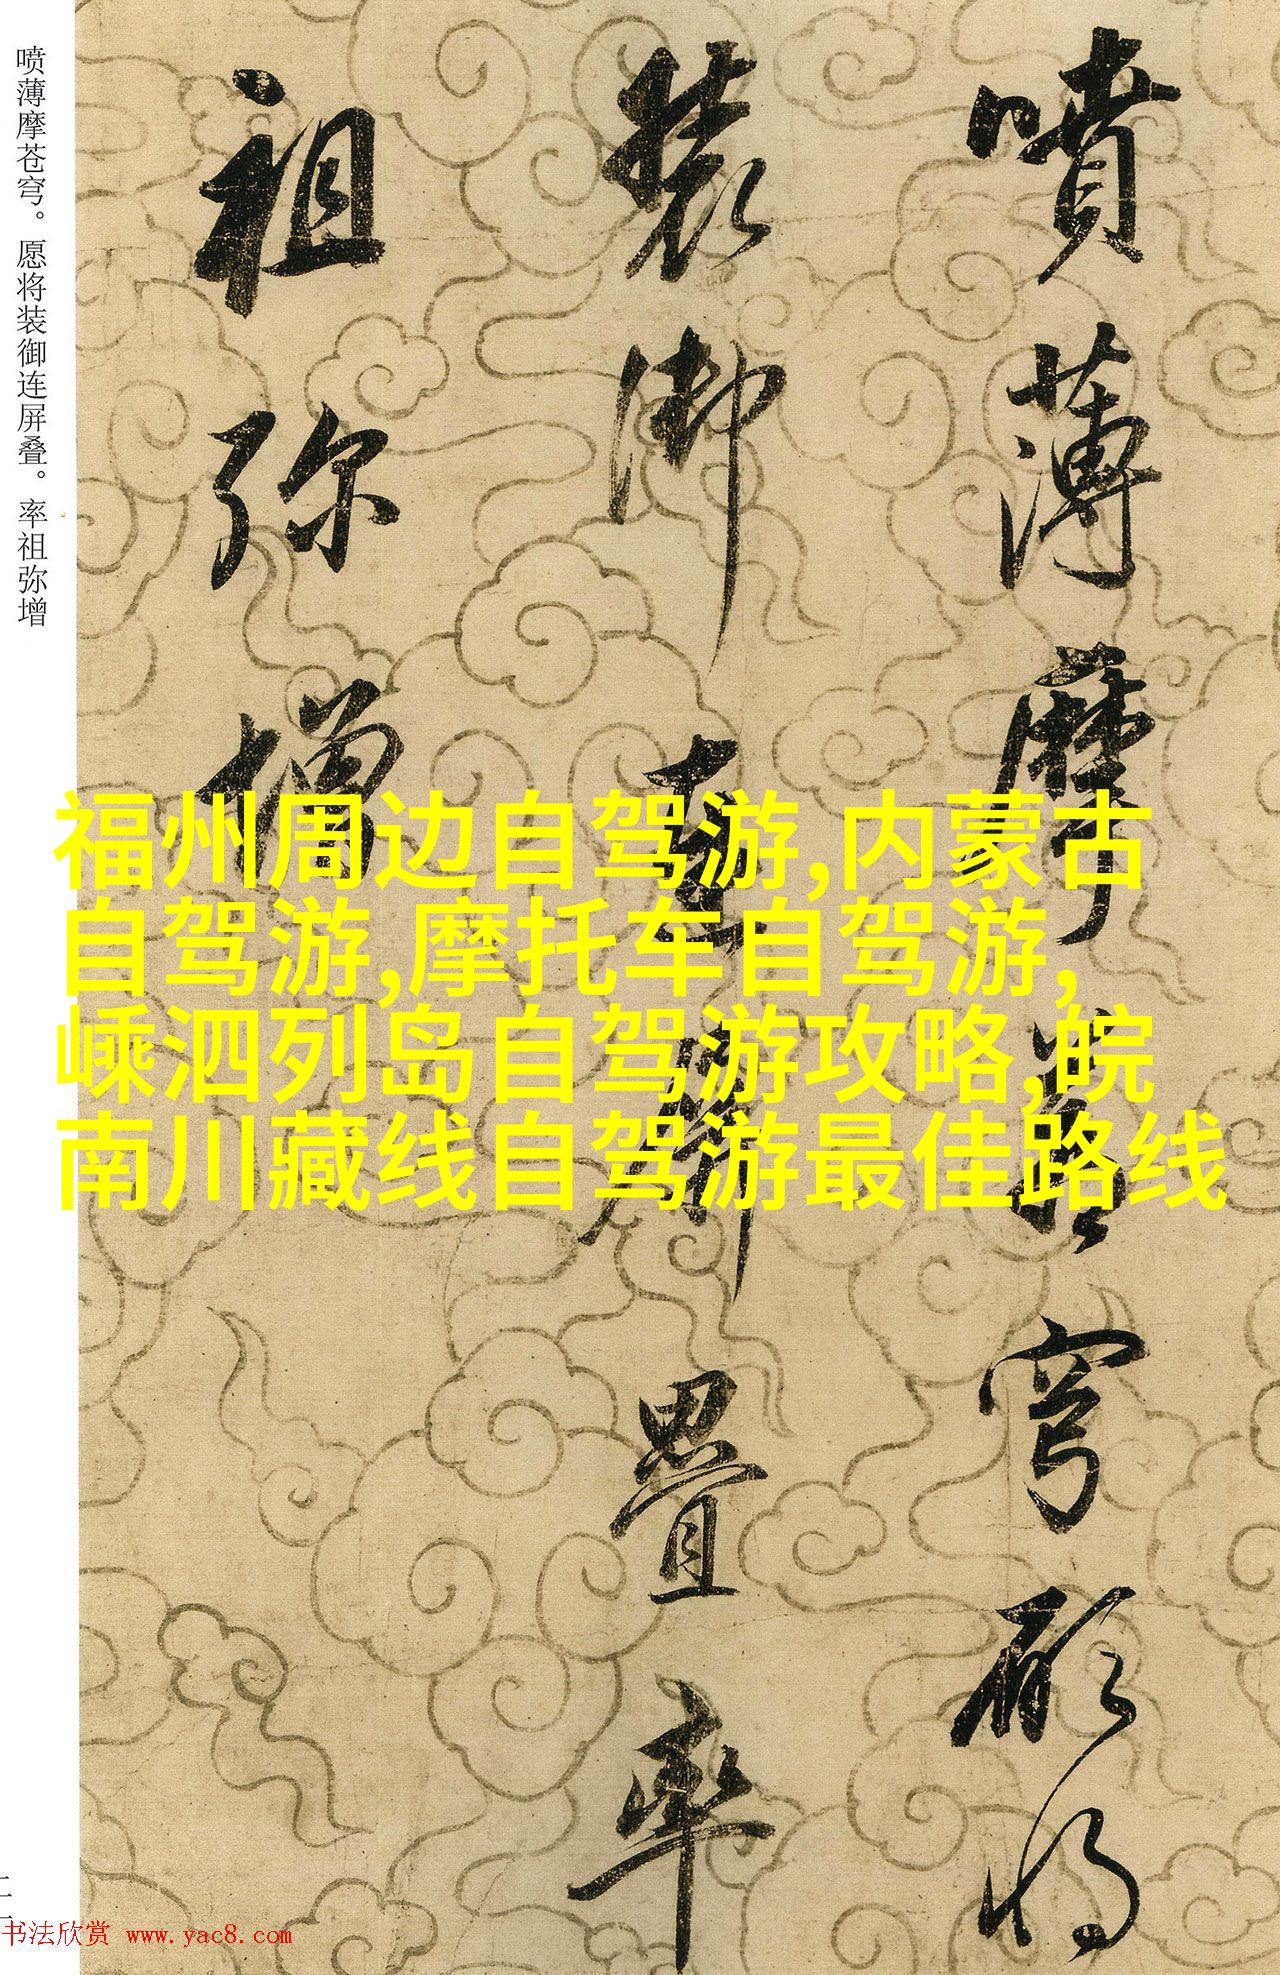 喷薄摩苍穹。愿将装御连屏叠。率祖弥增
噴薄摩蒼穹願将
装御連屏疊率
祖弥增
福州周边自驾游,内蒙古
自驾游,摩托车自驾游,
嵊泗列岛自驾游攻略,皖
南川藏线自驾游最佳路线
书法欣赏 www.yac8.com